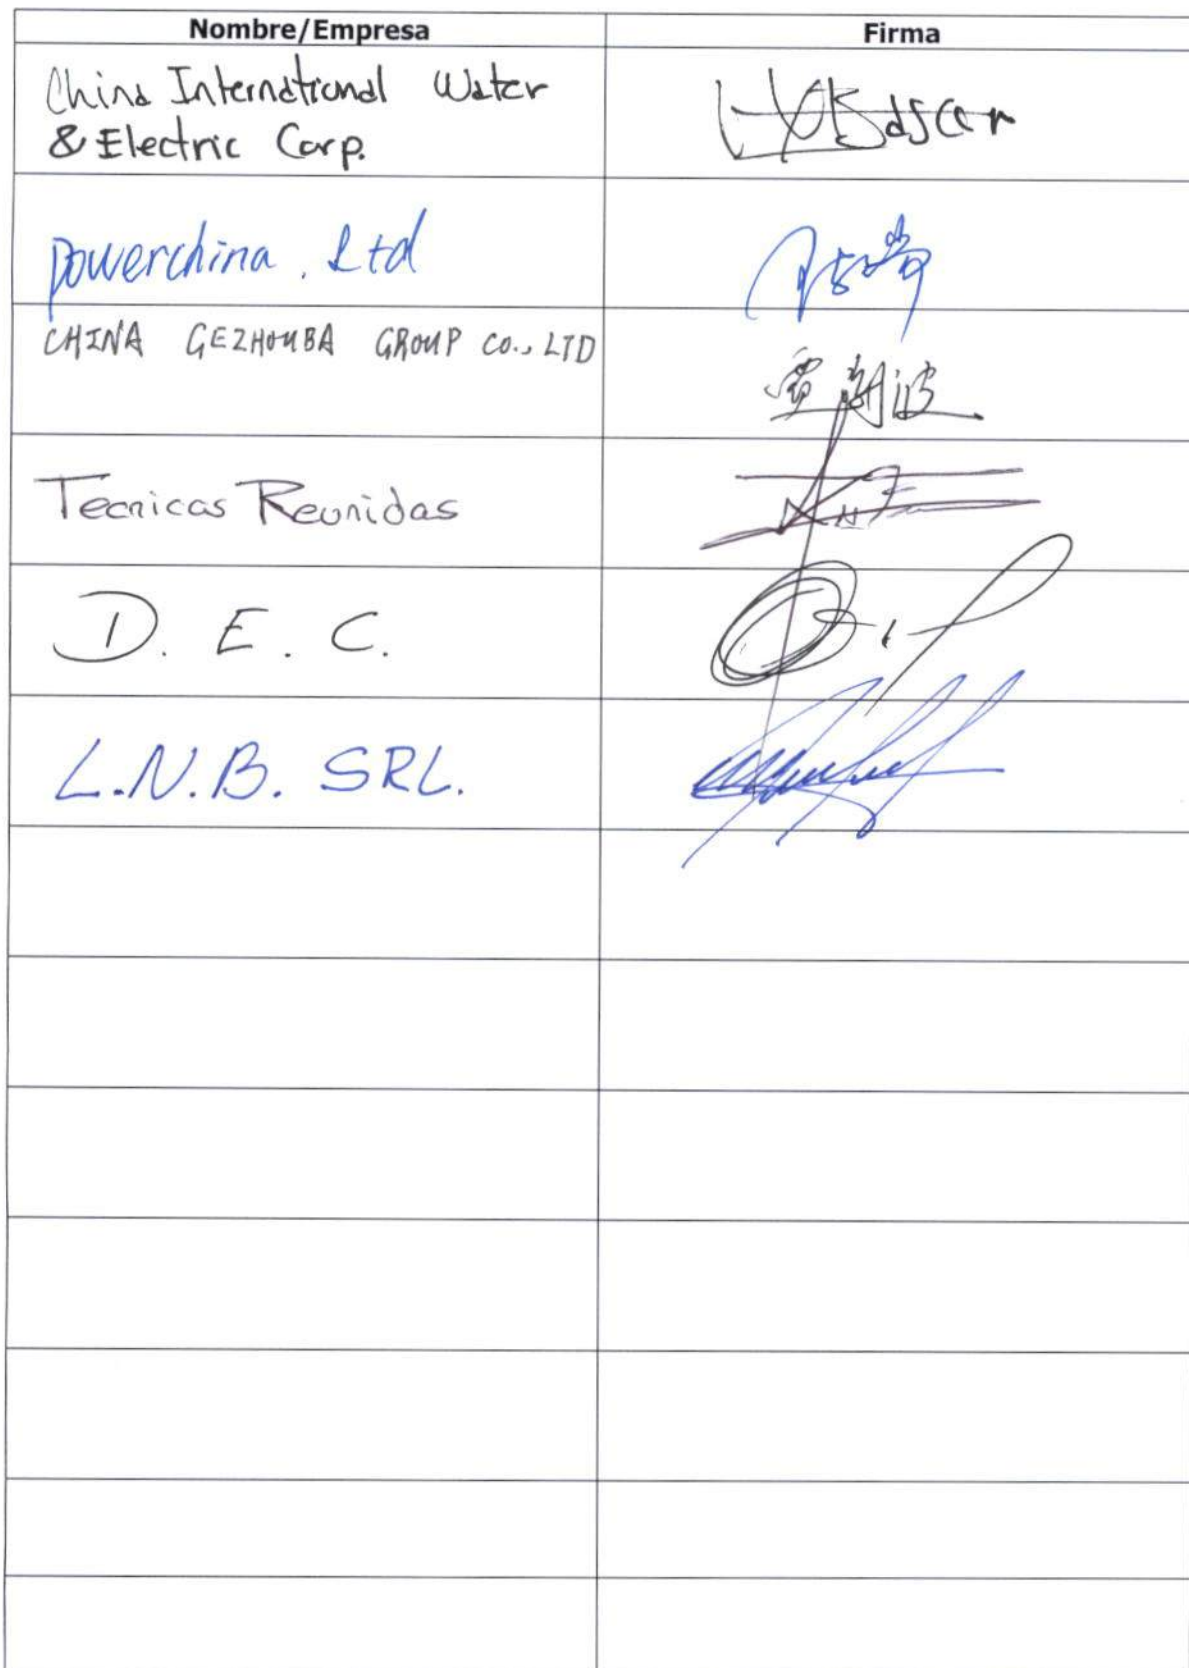 Nombre/Empresa
Firma
China International Water
& Electric Corp.
Powerchina. Ltd
CHINA GEZHOUBA GROUP CO., LTD
Tecnicas Reunidas
D. E. C.
L.N.B. SRL.